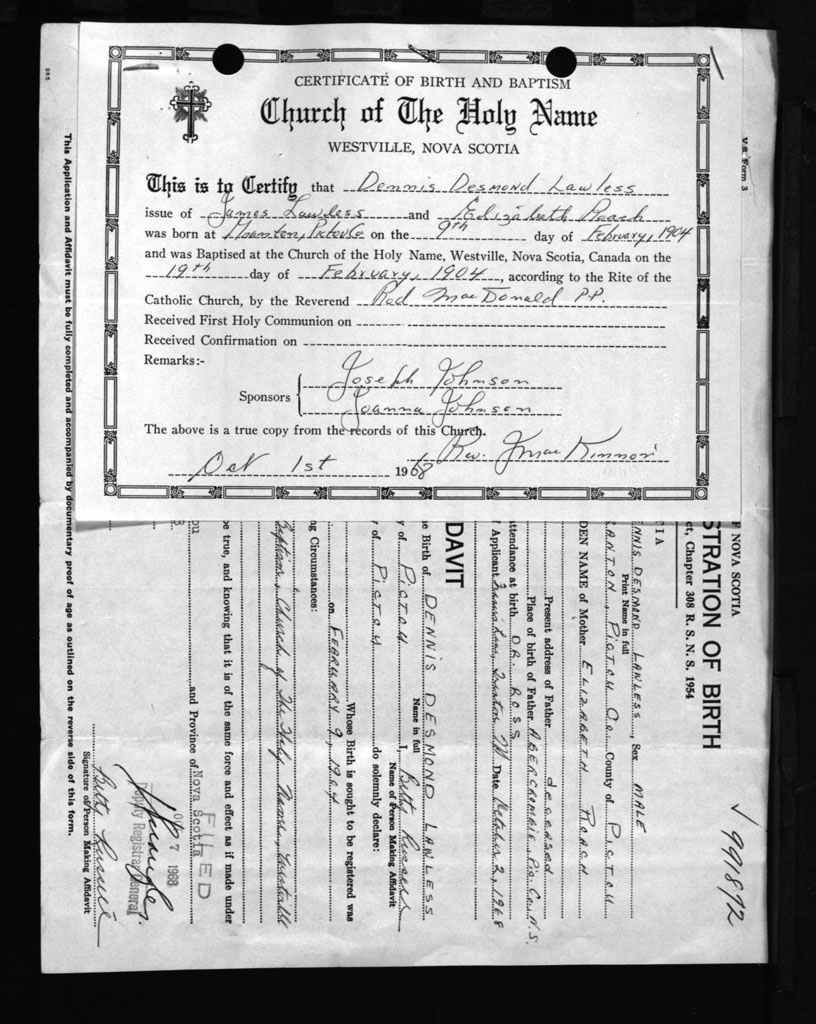 CERTIFICATE OF BIRTH AND BAPTISM
Church of The Holy Name
WESTVILLE, NOVA SCOTIA
This is to Certify that Dennis Desmond Lawless
issue of James Lawless and Elizabeth Roach
was born at Pictou Co on the 9th day of February, 1904
and was Baptised at the Church of the Holy Name, Westville, Nova Scotia, Canada on the
19th day of February, 1904, according to the Rite of the
Catholic Church, by the Reverend Rod MacDonald P.P.
Received First Holy Communion on
Received Confirmation on
Remarks:-
Sponsors
Joseph Johnson
Joanna Johnson
The above is a true copy from the records of this Church.
Rev. J MacKinnon
Oct 1st 1968
V.S. Form 3
991872
F NOVA SCOTIA
STRATION OF BIRTH
et, Chapter 308 R. S. N. S. 1954
TIA
NNIS DESMOND LAWLESS, Sex MALE
Print Name in full
ANTON, PICTOU Co. County of PICTOU
DEN NAME of Mother ELIZABETH ROACH
Present address of Father deceased
Place of birth of Father ABERCROMBIE, Pic. Co., N.S.
ttendance at birth DR. ROSS
Applicant Date October 2, 1968
DAVIT
e Birth of DENNIS DESMOND LAWLESS
Name in full
y of PICTOU I, Betty
Name of Person Making Affidavit
y of PICTOU do solemnly declare:
Whose Birth is sought to be registered was
on FEBRUARY 9, 1904
ng Circumstances:
Baptism, Church of The Holy Name, Westville
be true, and knowing that it is of the same force and effect as if made under
and Province of Nova Scotia
FILED
7 1968
Deputy Registrar General
Betty
Signature of Person Making Affidavit
This Application and Affidavit must be fully completed and accompanied by documentary proof of age as outlined on the reverse side of this form.